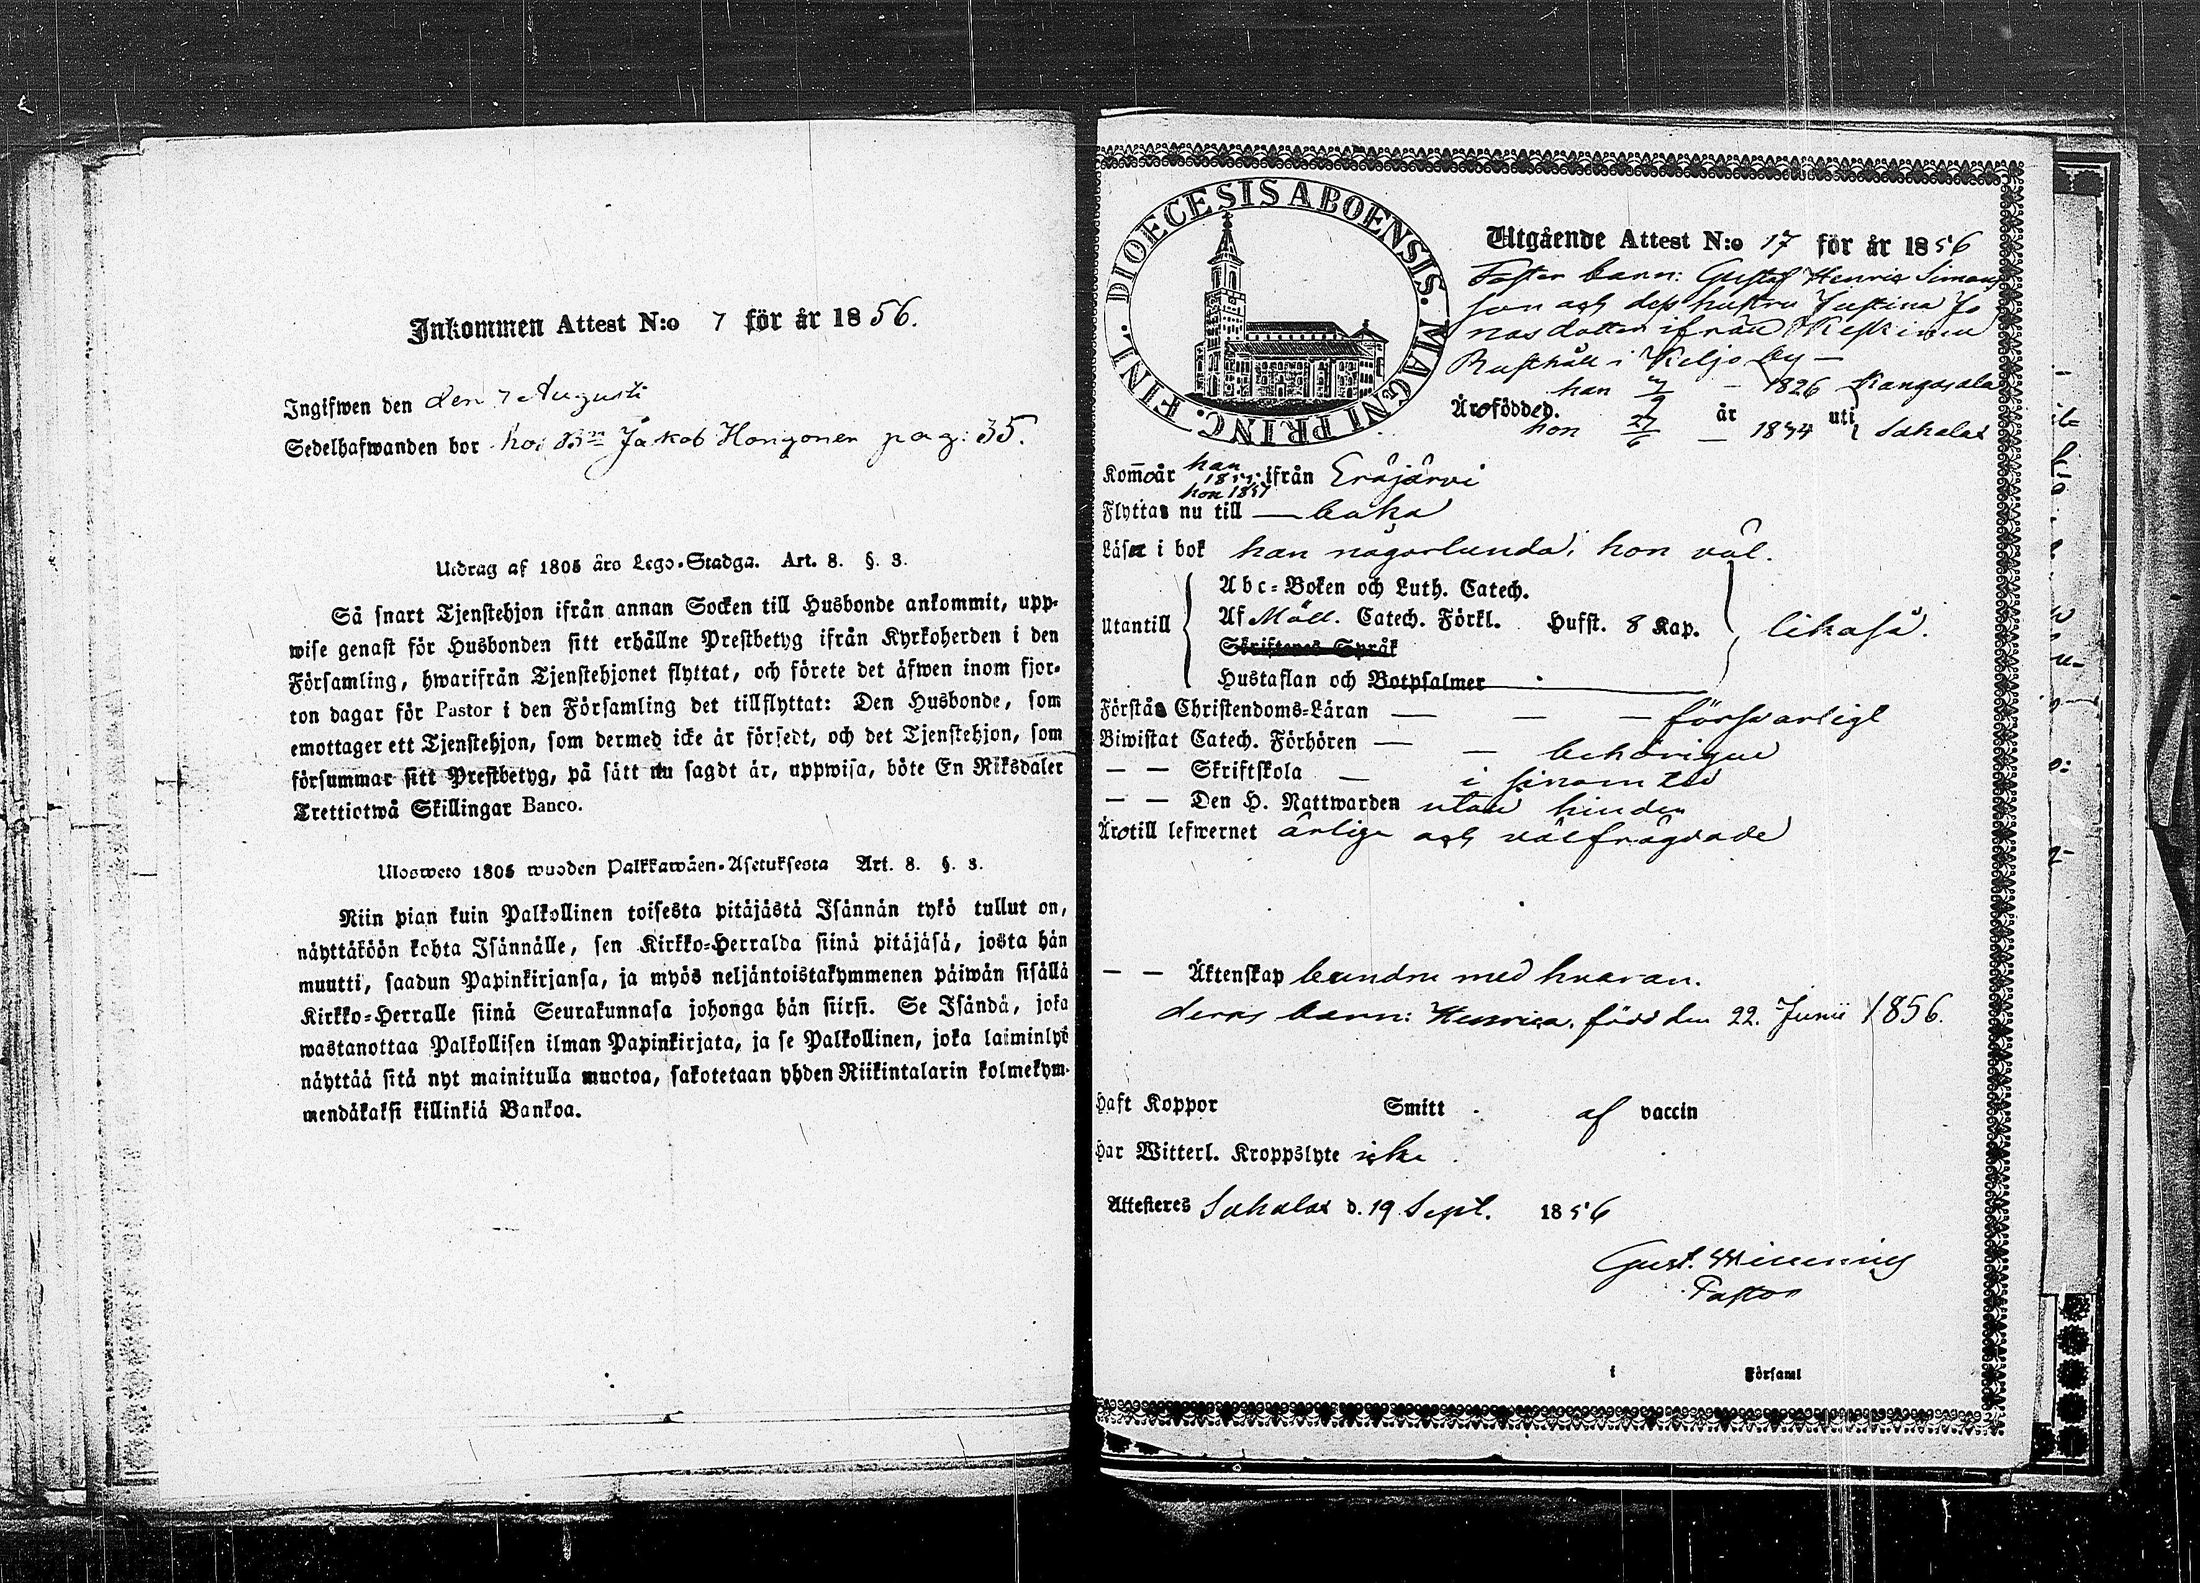 Inkommen Attest N:o 7 för år 1856.
Ingifwen den den 7 Augusti
Sedelhafwanden bor hos Bn Jakob Hongonen pag: 35.
Utdrag af 1805 års Lego-Stadga. Art. 8. §. 3.
Så snart Tjenstehjon ifrån annan Socken till Husbonde ankommit, upp-
wise genast för Husbonden sitt erhållne Prestbetyg ifrån Kyrkoherden i den
Församling, hwarifrån Tjenstehjonet flyttat, och förete det äfwen inom fjor-
ton dagar för Pastor i den Församling det tillflyttat: Den Husbonde, som
emottager ett Tjenstehjon, som dermed icke är försedt, och det Tjenstehjon, som
försummar sitt Prestbetyg, på sätt nu sagdt är, uppwisa, böte En Riksdaler
Trettiotwå Skillingar Banco.
Ulosweto 1805 wuoden Palkkawäen-Asetuksesta Art. 8. §. 3.
Niin pian kuin Palkollinen toisesta pitäjästä Isännän tykö tullut on,
näyttäköön kohta Isännälle, sen Kirkko-Herralda siinä pitäjäsä, josta hän
muutti, saadun Papinkirjansa, ja myös neljäntoistakymmenen päiwän sisällä
Kirkko-Herralle siinä Seurakunnasa johonga hän siirsi. Se Isändä, joka
wastanottaa Palkollisen ilman Papinkirjata, ja se Palkollinen, joka laiminlyö
näyttää sitä nyt mainitulla muotoa, sakotetaan yhden Riikintalarin kolmekym-
mendäkaksi killinkiä Bankoa.
DIOECESIS ABOENSIS. MAGNI PRINC. FINL.
Utgående Attest N:o 17 för år 1856
Foster barn: Gustaf Henric Simons
son och dess hustru Justina Jo
nasdotter ifrån Keskinen
Rusthåll i Keljo by —
han 7/9 — 1826 Kangasala
Äro födde. år uti
hon 27/6 — 1834 Sahalax
Kommo år han 1855 ifrån Eräjärvi
hon 1851
Flyttas nu till — baka
Läsa i bok han någorlunda, hon väl.
Abc-Boken och Luth. Catech.
Utantill Af Möll. Catech. Förkl. Husst. 8 Kap. likaså.
Skriftenes Språk
Hustaflan och Botpsalmer
Förstå Christendoms-Läran — — — försvarligt
Biwistat Catech. Förhören — — behörigen
— — Skriftskola — i sinom tid
— — Den H. Nattwarden utan hinder
Äro till lefwernet ärlige och välfrägdade
— — Äktenskap hundne med hvaran.
deras barn: Henrica, född den 22. Junii 1856.
Haft Koppor Smitt af vaccin
Har Witterl. Kroppslyte icke
Attesteres Sahalax d. 19 Sept. 1856
Gust.
Pastor
i Församl